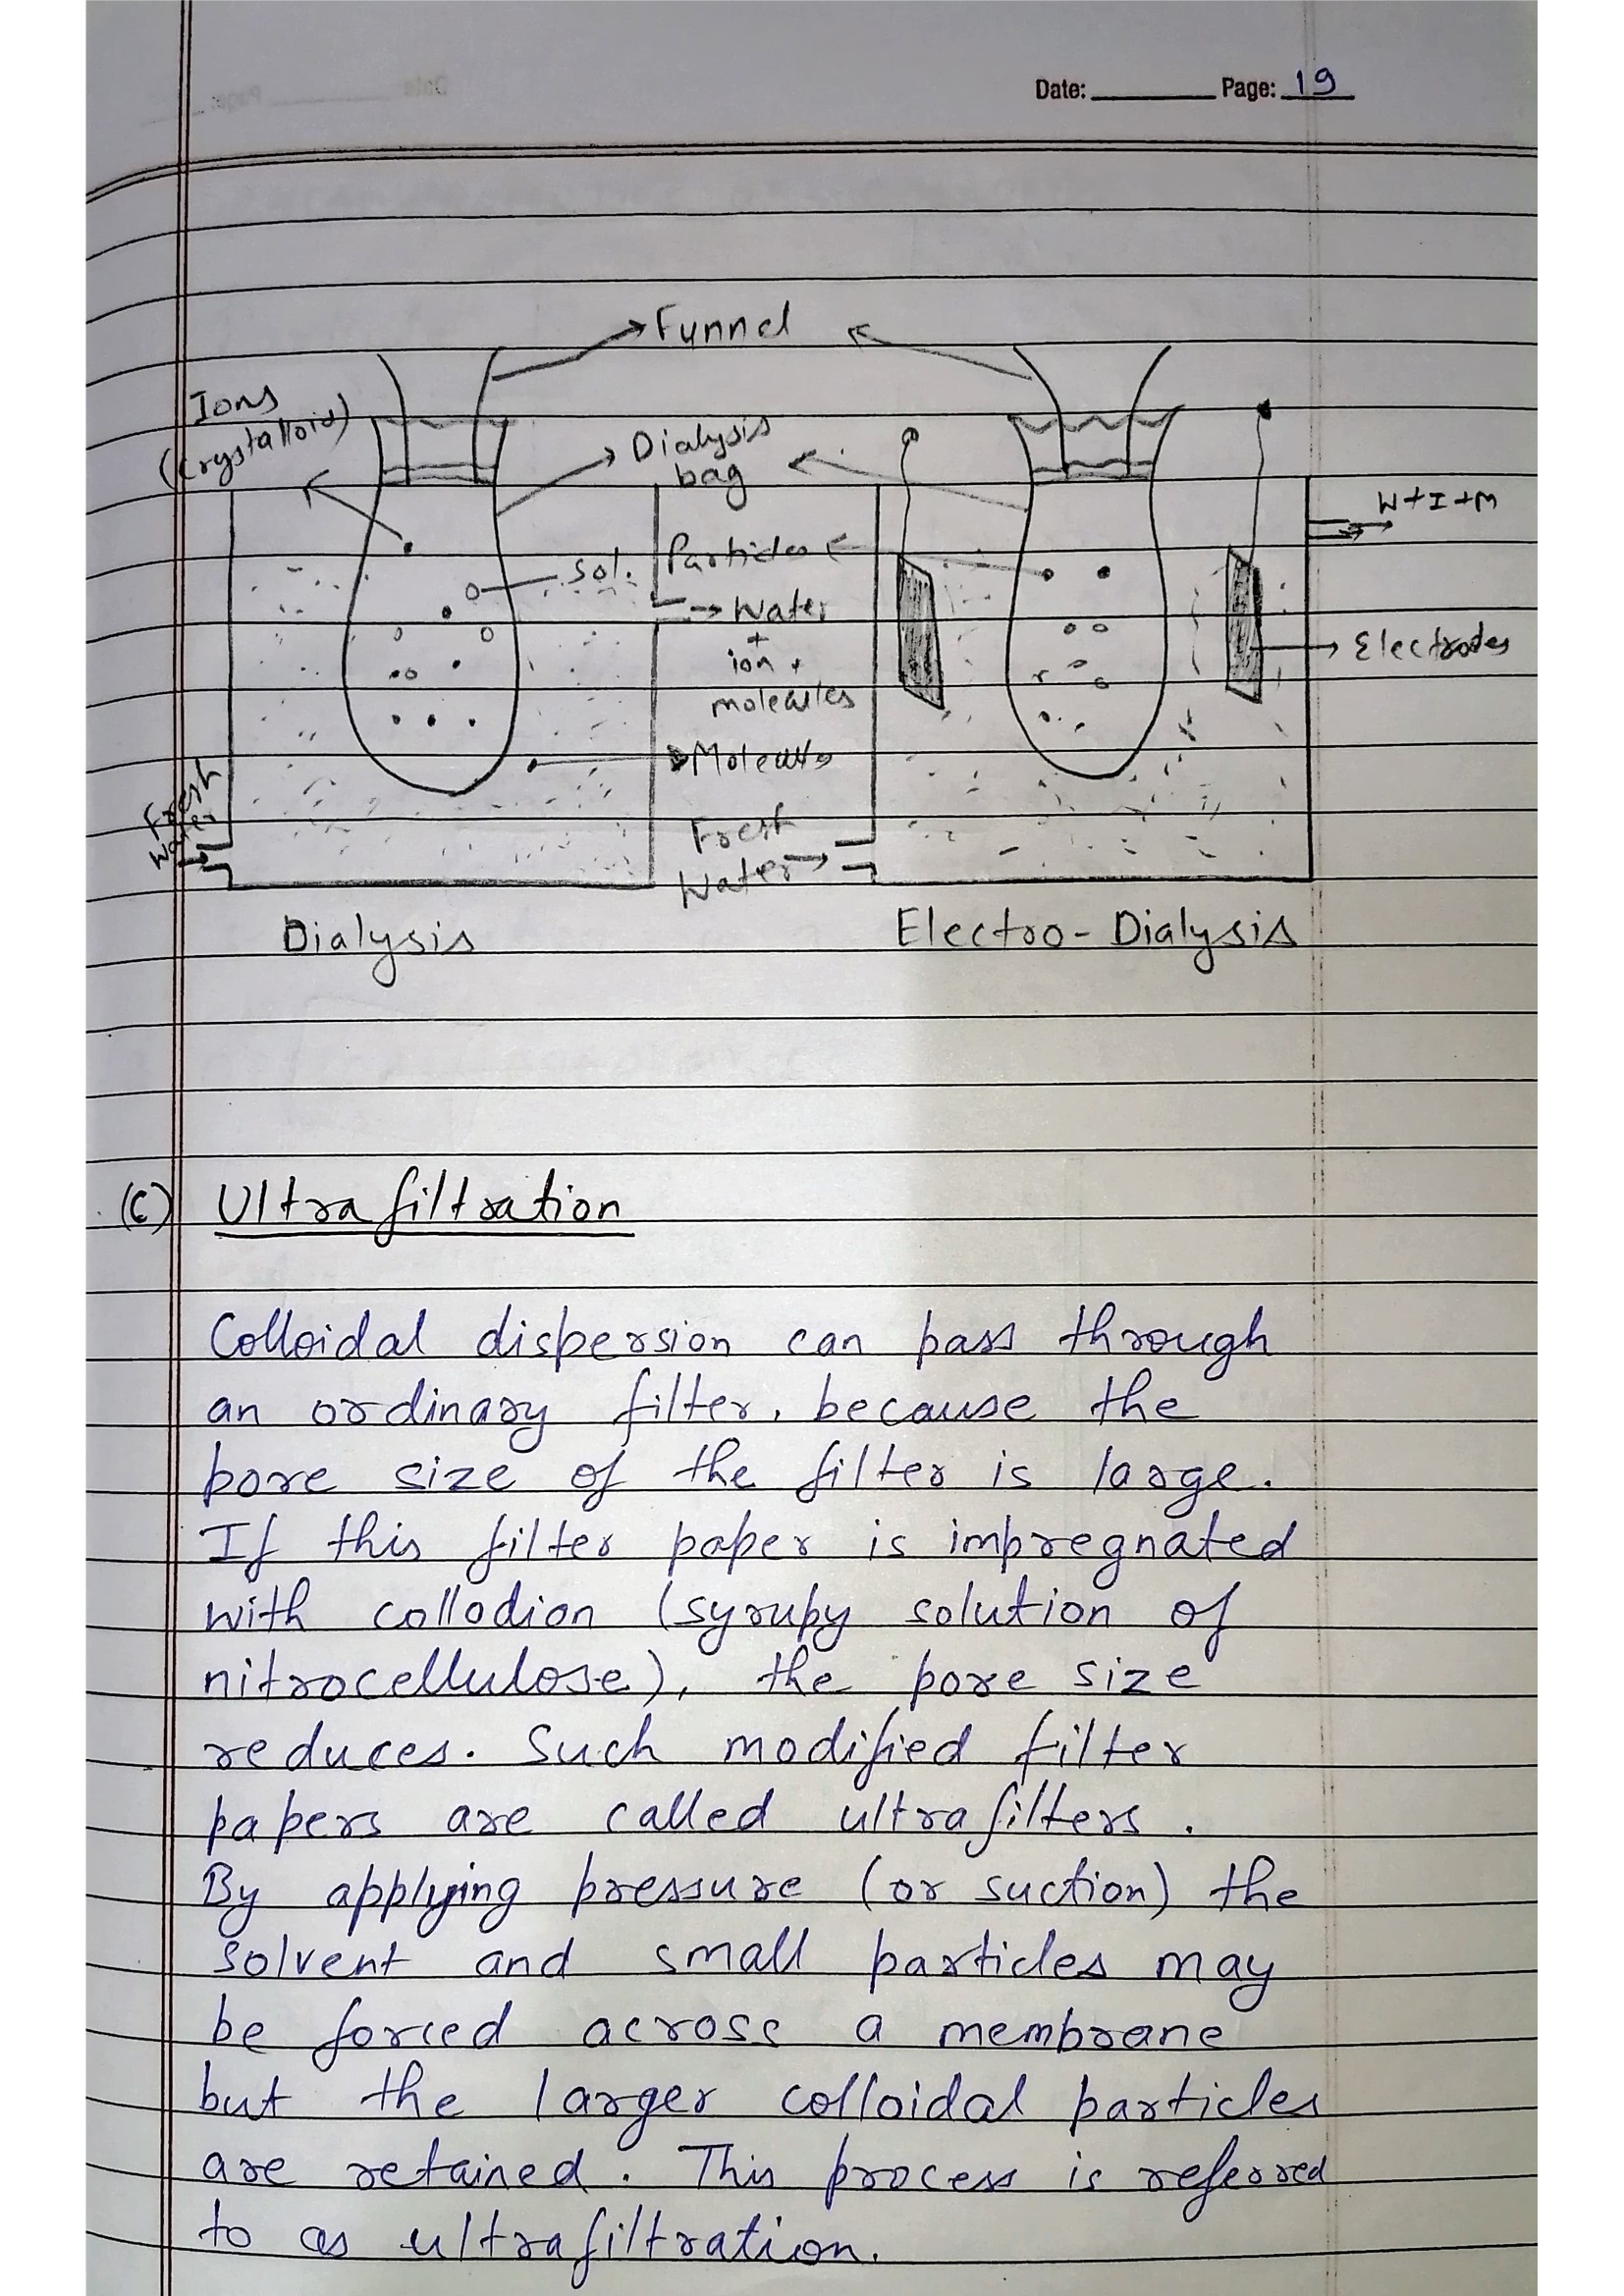 Date: Page: 19
Funnel
Ions
(Crystalloid)
Dialysis
bag
W+I+M
Particles
sol.
Water
+
ion +
molecules
Electrodes
Molecules
Fresh
Water
Fresh
Water
Dialysis
Electro-Dialysis
(C) Ultrafiltration
Colloidal dispersion can pass through
an ordinary filter, because the
pore size of the filter is large.
If this filter paper is impregnated
with collodion (syrupy solution of
nitrocellulose), the pore size
reduces. Such modified filter
papers are called ultrafilters.
By applying pressure (or suction) the
solvent and small particles may
be forced across a membrane
but the larger colloidal particles
are retained. This process is referred
to as ultrafiltration.